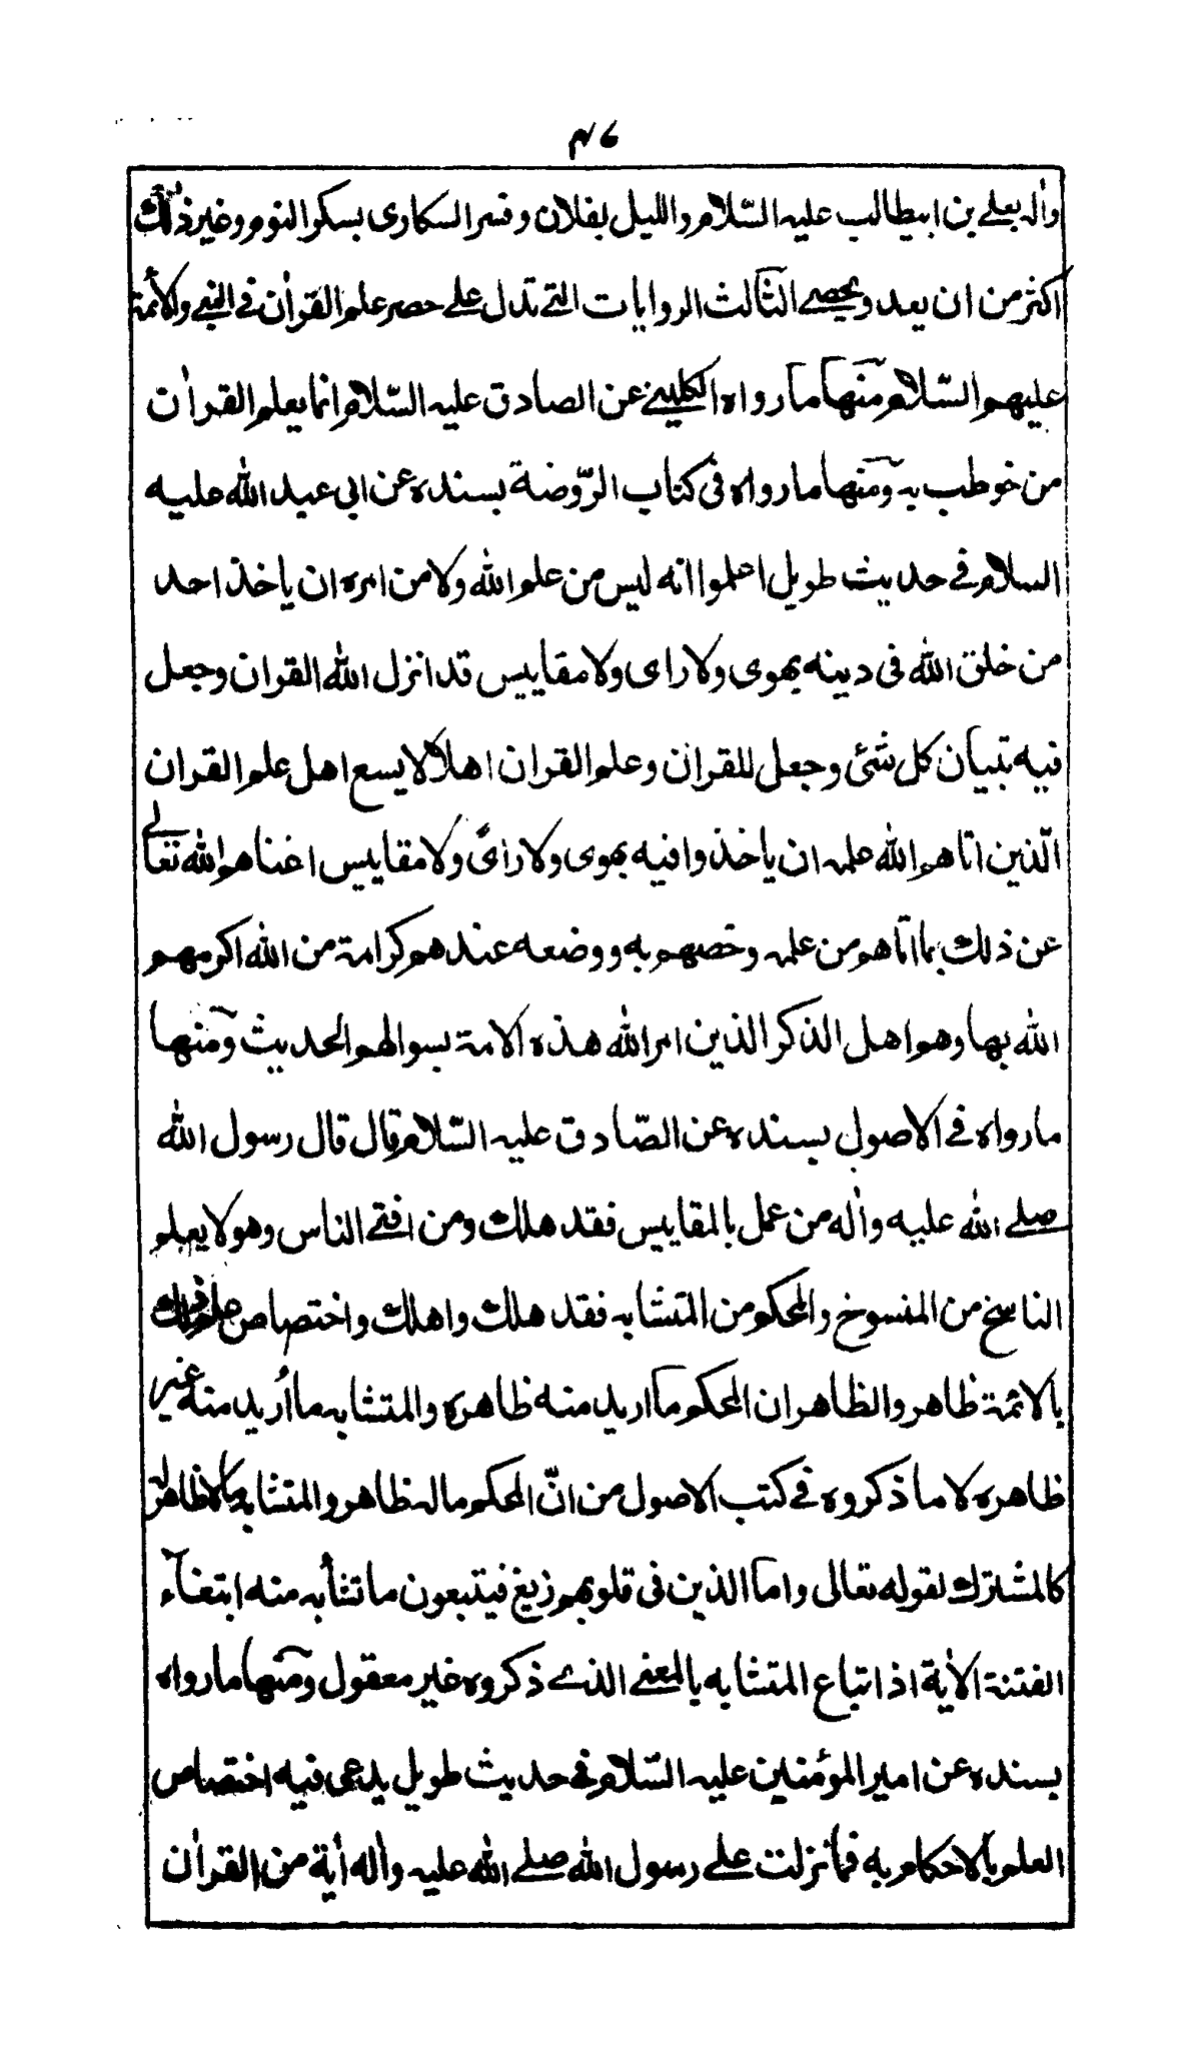 ٤٧
واٰله بعلے بن ابيطالب عليه السّلام والليل بفلان وفسر السكارى بسكر النوم وغير ذلك
اكثر من ان يعد ويحصے الثالث الروايات التے تدل علے حصر علم القراٰن فے النبے والائمة
عليهم السّلام منها ما رواه الكلينے عن الصادق عليه السّلام انما يعلم القراٰن
من خوطب به ومنها ما رواه فى كتاب الرّوضة بسنده عن ابى عبد الله عليه
السلام فے حديث طويل اعلموا انه ليس من علم الله ولا من امره ان ياخذ احد
من خلق الله فى دينه بهوى ولا راى ولا مقاييس قد انزل الله القران وجعل
فيه تبيان كل شئ وجعل للقراٰن وعلم القران اهلا لا يسع اهل علم القران
الّذين اتاهم الله علمه ان ياخذوا فيه بهوى ولا رائ ولا مقاييس اغناهم الله تعالے
عن ذلك بما اتاهم من علمه وخصهم به ووضعه عندهم كرامة من الله اكرمهم
الله بها وهم اهل الذكر الذين امر الله هذه الامة بسوالهم الحديث ومنها
ما رواه فے الاصول بسنده عن الصّادق عليه السّلام قال قال رسول الله
صلے الله عليه واٰله من عمل بالمقاييس فقد هلك ومن افتے الناس وهو لا يعلم
الناسخ من المنسوخ والمحكم من المتشابه فقد هلك واهلك واختصاص علم ذلك
بالائمة ظاهر والظاهر ان المحكم ما اريد منه ظاهره والمتشابه ما اُريد منه غير
ظاهره لا ما ذكروه فے كتب الاصول من انّ المحكم ماله ظاهر والمتشابه ما لا ظاهر له
كالمشترك لقوله تعالى واما الذين فى قلوبهم زيغ فيتبعون ما تشابه منه ابتغآء
الفتنة الاٰية اذ اتباع المتشابه بالمعنے الذے ذكروه غير معقول ومنها ما رواه
بسنده عن امير المؤمنين عليه السّلام فے حديث طويل يدعى فيه اختصاص
العلم بالاحكام به فما نزلت علے رسول الله صلے الله عليه واٰله اٰية من القراٰن